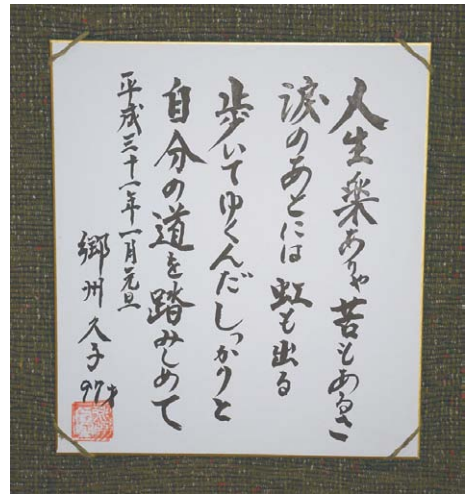 人生楽ありゃ苦もあるさ
涙のあとには虹も出る
歩いてゆくんだしっかりと
自分の道を踏みしめて
平成三十一年一月元旦
郷州久子97才